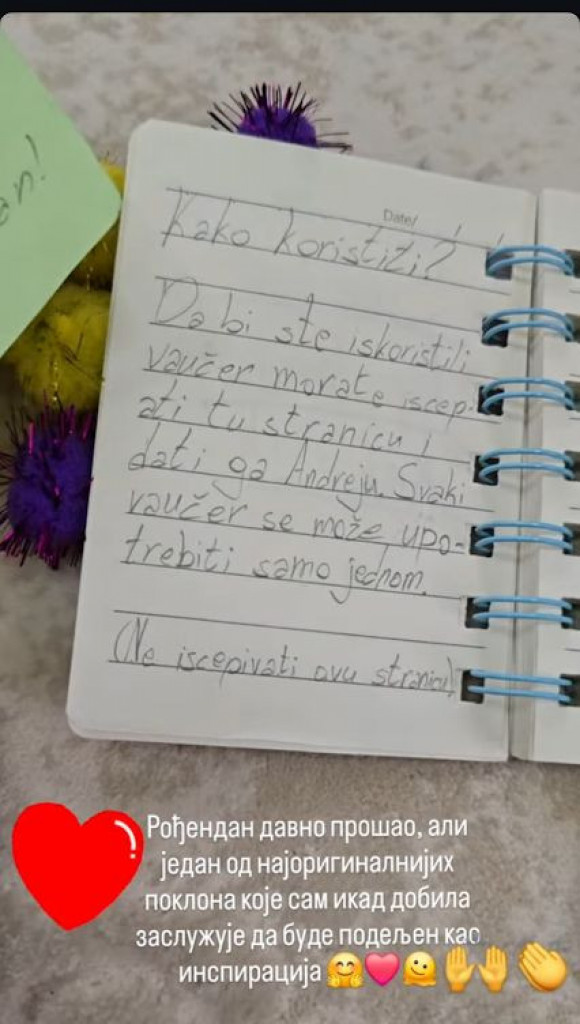 an!
Date/ / /
Kako koristiti?
Da bi ste iskoristili
vaučer morate iscep-
ati tu stranicu i
dati ga Andreju. Svaki
vaučer se može upo-
trebiti samo jednom.
(Ne iscepivati ovu stranicu)
Рођендан давно прошао, али
један од најоригиналнијих
поклона које сам икад добила
заслужује да буде подељен као
инспирација 🤗💗🫠🙌👏